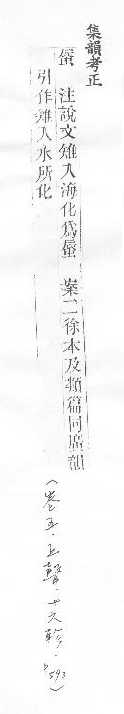 集韻考正
蜃 注說文雉入海化爲蜃 案二徐本及類篇同廣韻
引作雉入水所化
(卷五.上聲.十六軫.P593)